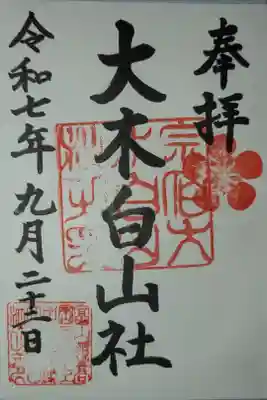 奉拝
大木白山社
令和七年九月二十三日